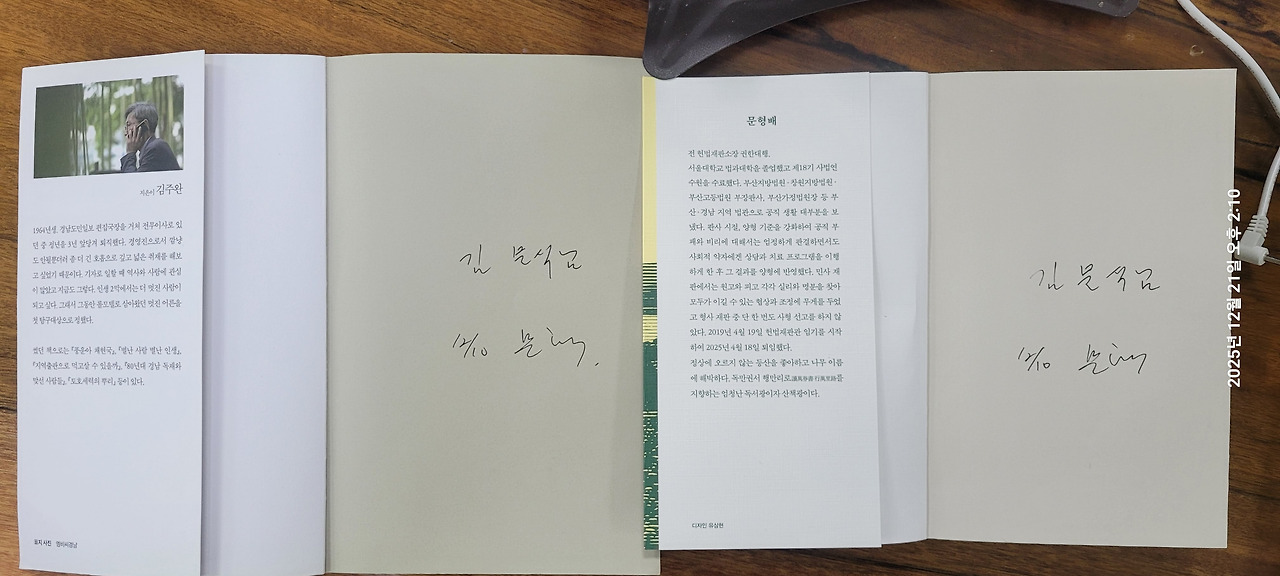 지은이 김주완
1964년생. 경남도민일보 편집국장을 거쳐 전무이사로 있
던 중 정년을 3년 앞당겨 퇴직했다. 경영진으로서 밥값
도 안될뿐더러 좀 더 긴 호흡으로 깊고 넓은 취재를 해보
고 싶었기 때문이다. 기자로 일할 때 역사와 사람에 관심
이 많았고 지금도 그렇다. 인생 2막에서는 더 멋진 사람이
되고 싶다. 그래서 그동안 롤모델로 삼아왔던 멋진 어른을
첫 탐구대상으로 정했다.
펴낸 책으로는 『풍운아 채현국』, 『별난 사람 별난 인생』,
『지역출판으로 먹고살 수 있을까』, 『80년대 경남 독재와
맞선 사람들』, 『토호세력의 뿌리』 등이 있다.
표지 사진 엠비씨경남
김 문석님
문형배
문형배
전 헌법재판소장 권한대행.
서울대학교 법과대학을 졸업했고 제18기 사법연
수원을 수료했다. 부산지방법원·창원지방법원·
부산고등법원 부장판사, 부산가정법원장 등 부
산·경남 지역 법관으로 공직 생활 대부분을 보
냈다. 판사 시절, 양형 기준을 강화하여 공직 부
패와 비리에 대해서는 엄정하게 판결하면서도
사회적 약자에겐 상담과 치료 프로그램을 이행
하게 한 후 그 결과를 양형에 반영했다. 민사 재
판에서는 원고와 피고 각각 실리와 명분을 찾아
모두가 이길 수 있는 협상과 조정에 무게를 두었
고 형사 재판 중 단 한 번도 사형 선고를 하지 않
았다. 2019년 4월 19일 헌법재판관 임기를 시작
하여 2025년 4월 18일 퇴임했다.
정상에 오르지 않는 등산을 좋아하고 나무 이름
에 해박하다. 독만권서 행만리로讀萬卷書 行萬里路를
지향하는 엄청난 독서광이자 산책광이다.
디자인 유상현
김 문석님
문형배
2025년 12월 21일 오후 2:10